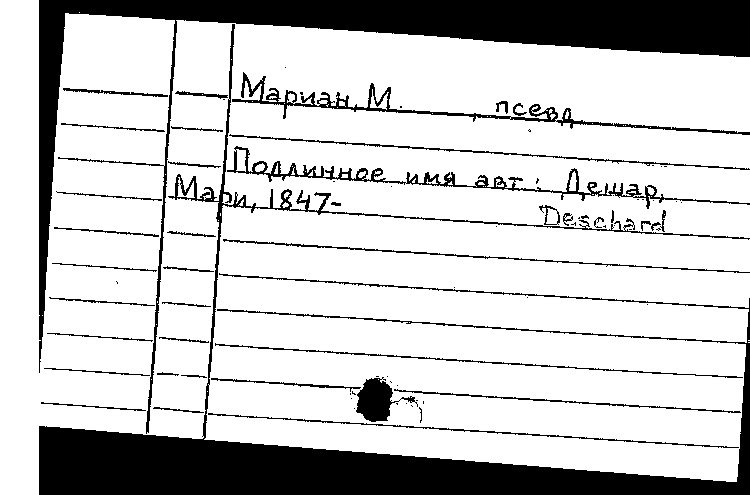 Мариан, М. , псевд.
Подлинное имя авт: Дешар,
Мари, 1847-
Deschard